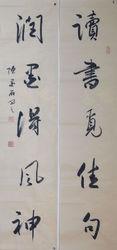 讀書覓佳句
潤墨得風神